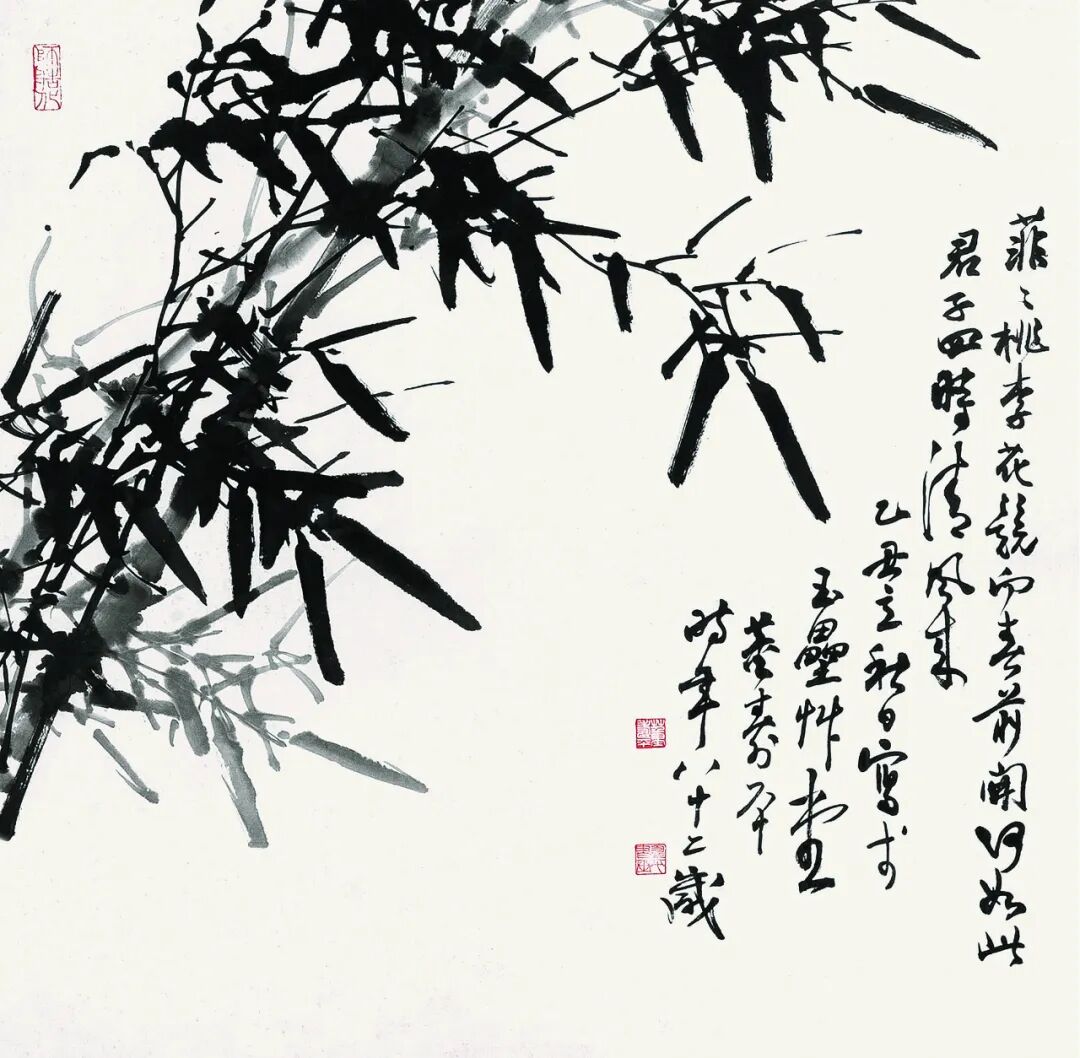 菲〻桃李花競向春前開何如此
君子四時清風来
乙丑立秋日寫於
玉壘艸堂
董壽平
時年八十二歲